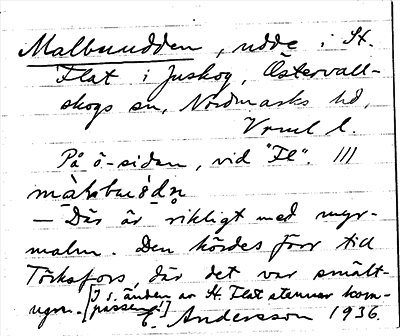 Malbuudden, udde i St.
Flat i Juskog, Östervall-
skogs sn, Nordmarks hd,
Vrml l.
På ö-sidan, vid "Fl". III
— Där är rikligt med myr-
malm. Den kördes förr till
Töcksfors, där det var smält-
ugn. [I s. änden av St. Flat stannar kom-
passen.]
E. Andersson 1936.